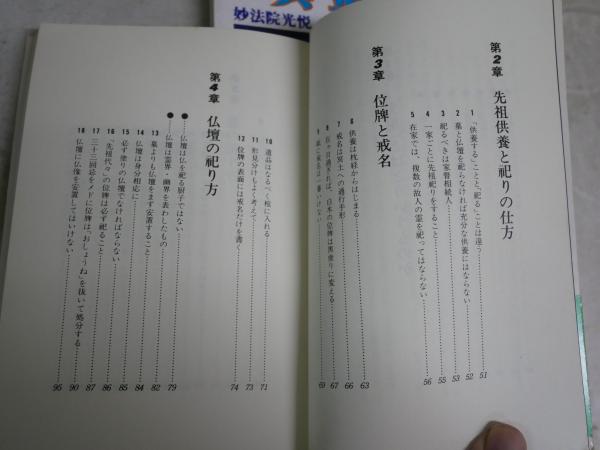 妙法院光悦
第2章 先祖供養と祀りの仕方
1 「供養する」ことと、「祀る」ことは違う 51
2 墓と仏壇を祀らなければ充分な供養にはならない 52
3 祀るべきは家督相続人 53
4 一家ごとに先祖祀りをすること 55
5 在家では、複数の故人の霊を祀ってはならない 56
第3章 位牌と戒名
6 供養は枕経からはじまる 63
7 戒名は冥土への通行手形 66
8 四十九日過ぎれば、白木の位牌は黒塗りに変える 67
9 紙に戒名は一番いけない 69
10 遺品はなるべく棺に入れる 71
11 形見分けもよく考えて 73
12 位牌の表面には戒名だけを書く 74
第4章 仏壇の祀り方
●……仏壇は仏を祀る厨子ではない
●……仏壇は霊界・幽界を表わしたもの 79
13 墓よりも仏壇をまず安置すること 82
14 仏壇は身分相応に 84
15 必ず塗りの仏壇でなければならない 85
16 "先祖代々"の位牌は必ず祀ること 86
17 三十三回忌をメドに位牌は「おしょうね」を抜いて処分する 87
18 仏壇に仏像を安置してはいけない 90
95